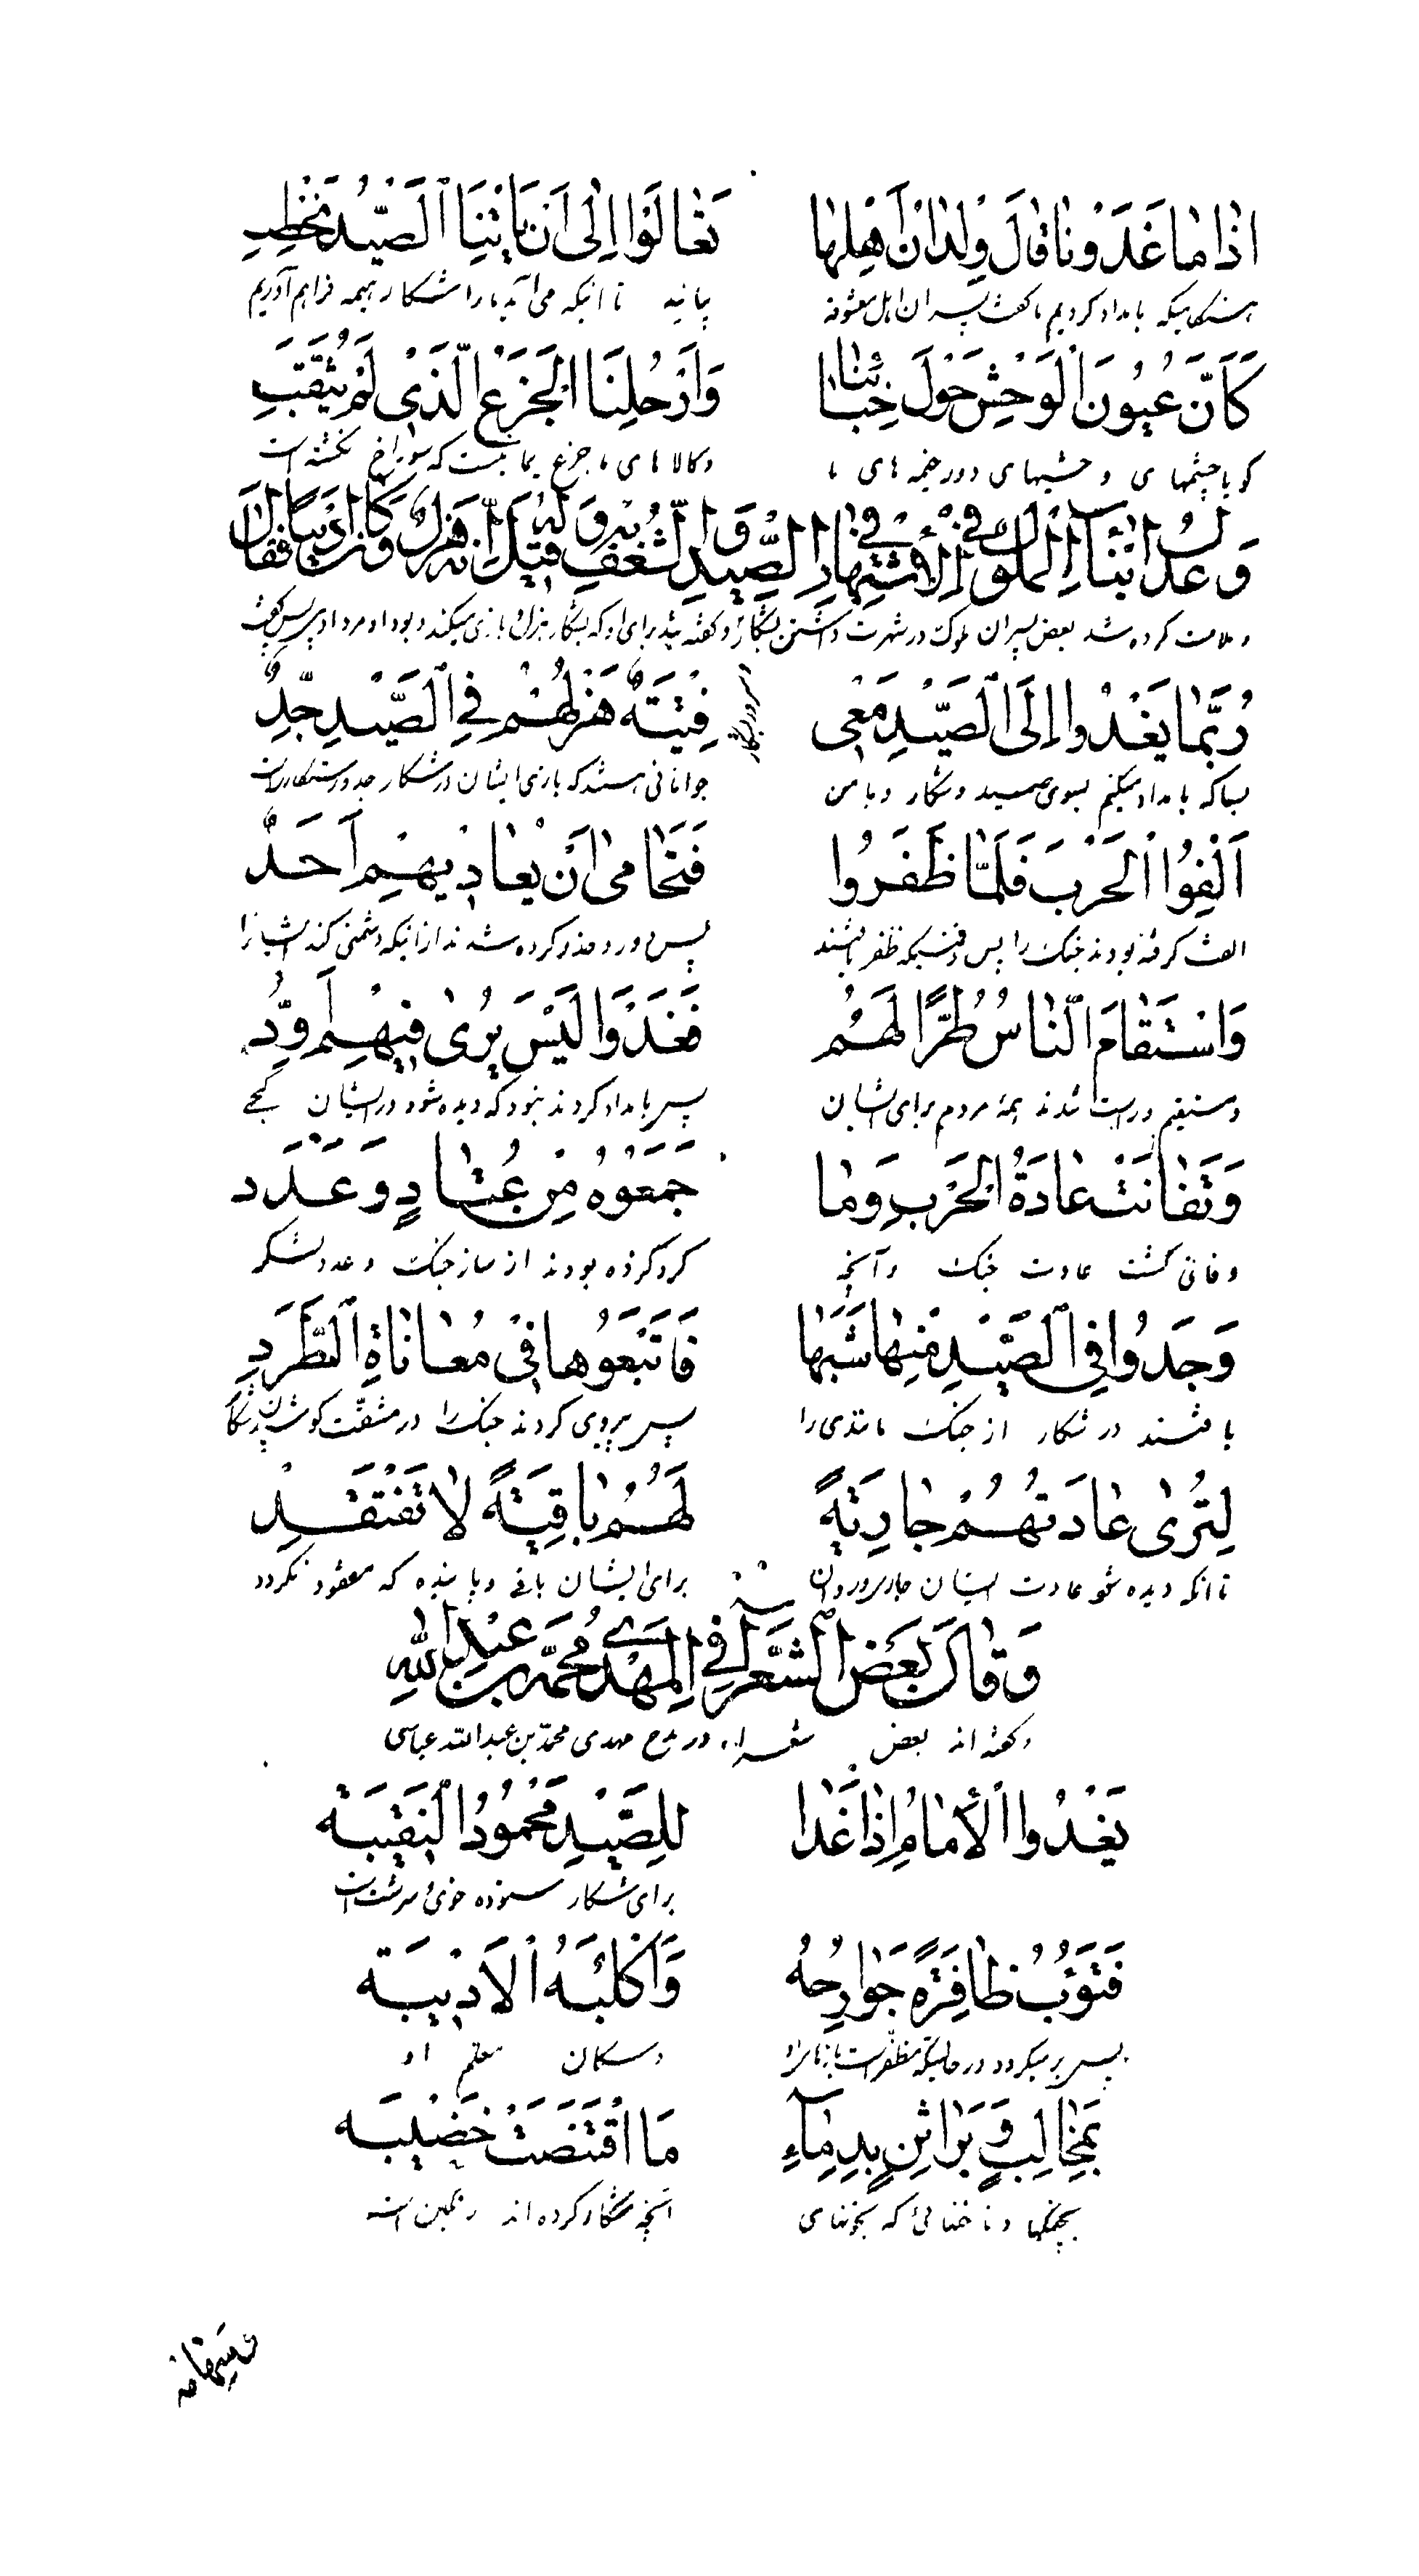 اِذٰا مٰا غَدَوْنٰا قٰالَ وِلْدٰانُ اَهْلِهٰا تَعٰالَوْا اِلٰى اَنْ يَاْتِيَنَا الصَّيْدُ نَحْطِبِ
هنگامیکه بامداد کردیم ما گفت پسران اهل معشوقه بیائید تا انیکه می آید ما را شکار هیمه فراهم آوریم
كَاَنَّ عُيُونَ الْوَحْشِ حَوْلَ خِبٰائِنٰا وَاَرْحُلِنَا الْجَزْعُ الَّذٖى لَمْ يُثَقَّبِ
گویا چشمهای وحشیهای دور خیمه های ما وکالاهای ما جزع یمانیست که سوراخ نگشته است
وَعُذِلَ بَعْضُ اَبْنٰاءِ الْمُلُوكِ فِى الْاِشْتِهٰارِ بِالصَّيْدِ وَالشَّغَفِ بِهٖ وَقٖيلَ لَهُ اِنَّهُ هَزْلٌ وَكٰانَ اَدٖيبًا فَقٰالَ
وملامت کرده شد بعض پسران ملوک در شهرت داشتن بشکار و گفته شد برای او که بشکار هزل و بازی میکند و بود او مرد ادیب پس گفت
رُبَّمٰا يَغْدُوا اِلَى الصَّيْدِ مَعٖى فِتْيَةٌ هَزْلُهُمْ فِى الصَّيْدِ جِدٌّ
بسا که بامداد میکنم بسوی صید و شکار و با من جوانانی هستند که بازی ایشان در شکار جد و رستکاریست
اَلِفُوا الْحَرْبَ فَلَمّٰا ظَفَرُوا فَتَحٰامىٰ اَنْ يُعٰادٖيهِمْ اَحَدٌ
الفت گرفته بودند جنگ را پس وقتیکه ظفر یافتند پس دور و حذر کرده شدند از انیکه دشمنی کند ایشانرا
وَاسْتَقٰامَ النّٰاسُ طُرًّا لَهُمْ فَغَدَوْا لَيْسَ يُرىٰ فٖيهِمْ اَوَدٌ
ومستقیم و راست شدند همه مردم برای ایشان پس بامداد کردند نبود که دیده شود در ایشان کجی
وَتَفٰانَتْ عٰادَةُ الْحَرْبِ وَمٰا جَمَعُوهُ مِنْ عُتٰادٍ وَعَدَد
و فانی گشت عادت جنگ و آنچه گرد کرده بودند از ساز جنگ و عدد لشکر
وَجَدُوا فِى الصَّيْدِ مِنْهٰا شَبَهًا فَاتَّبَعُوهٰا فٖى مُعٰانٰاةِ الطَّرَدِ
یافتند در شکار از جنگ مانندی را پس پیروی کردند جنگ را در مشقّت کوشیدن در شکار
لِتُرىٰ عٰادَتُهُمْ جٰارِيَةً لَهُمُ بٰاقِيَةً لٰا تَفْتَقِدِ
تا انکه دیده شود عادت ایشان جاری و روان برای ایشان باقی و پاینده که مفقود نگردد
وَقٰالَ بَعْضُ الشُّعَرٰاءِ فِى الْمَهْدِىِّ مُحَمَّدِ بْنِ عَبْدِ اللهِ
وگفته اند بعض شعراء در مدح مهدی محمّد بن عبدالله عباسی
يَغْدُوا الْاِمٰامُ اِذٰا غَدٰا لِلصَّيْدِ مَحْمُودُ النَّقٖيبَة
برای شکار ستوده خوی و سرشت است
فَتَؤُبُ ظٰافِرَةً جَوٰارِحُهُ وَاَكْلُبُهُ الْاَدٖيبَة
پس برمیگردد در حالیکه مظفّر است بازهای او وسگان معلم او
بِمَخٰالِبٍ وَبَرٰاثِنٍ بِدِمٰاءِ مَا اقْتَنَصَتْ خَضٖيبَه
بچنگها و ناخنهائی که بخونهای آنچه شکار کرده اند رنگین است